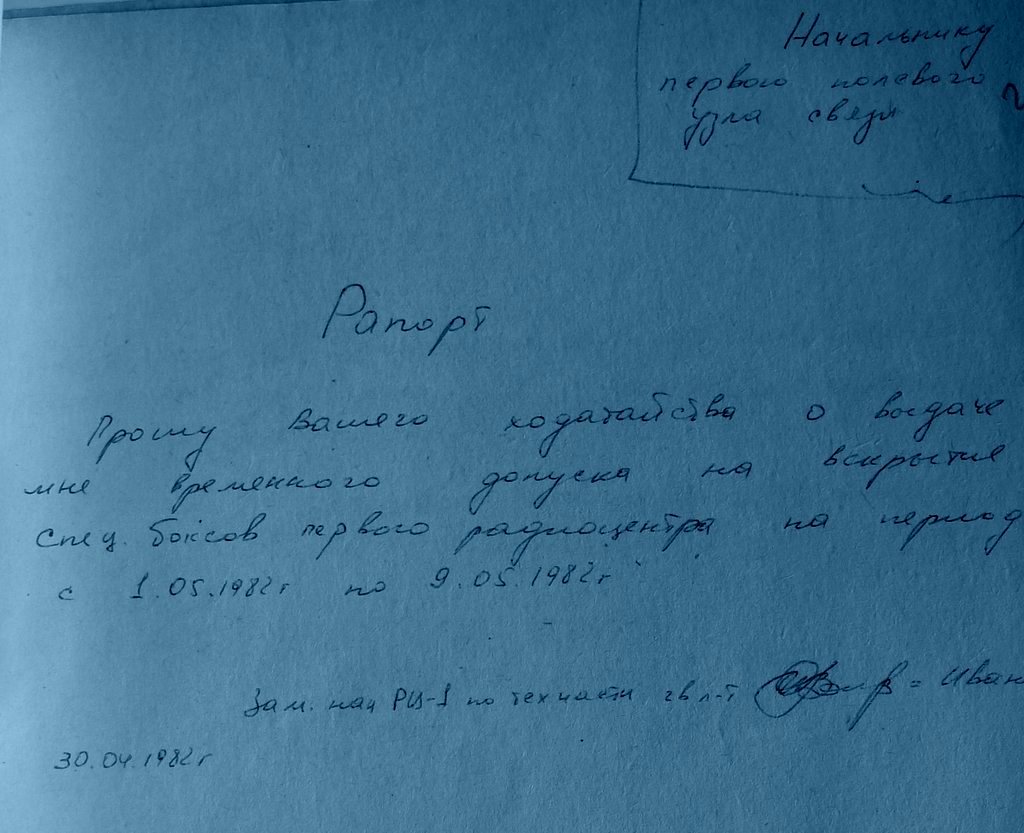 Начальнику
первого полевого
узла связи
Рапорт
Прошу Вашего ходатайства о выдаче
мне временного допуска на вскрытие
спец. боксов первого радиоцентра на период
с 1.05.1982г по 9.05.1982г
Зам. нач РЦ-1 по тех части гв л-т Иван
30.04.1982г